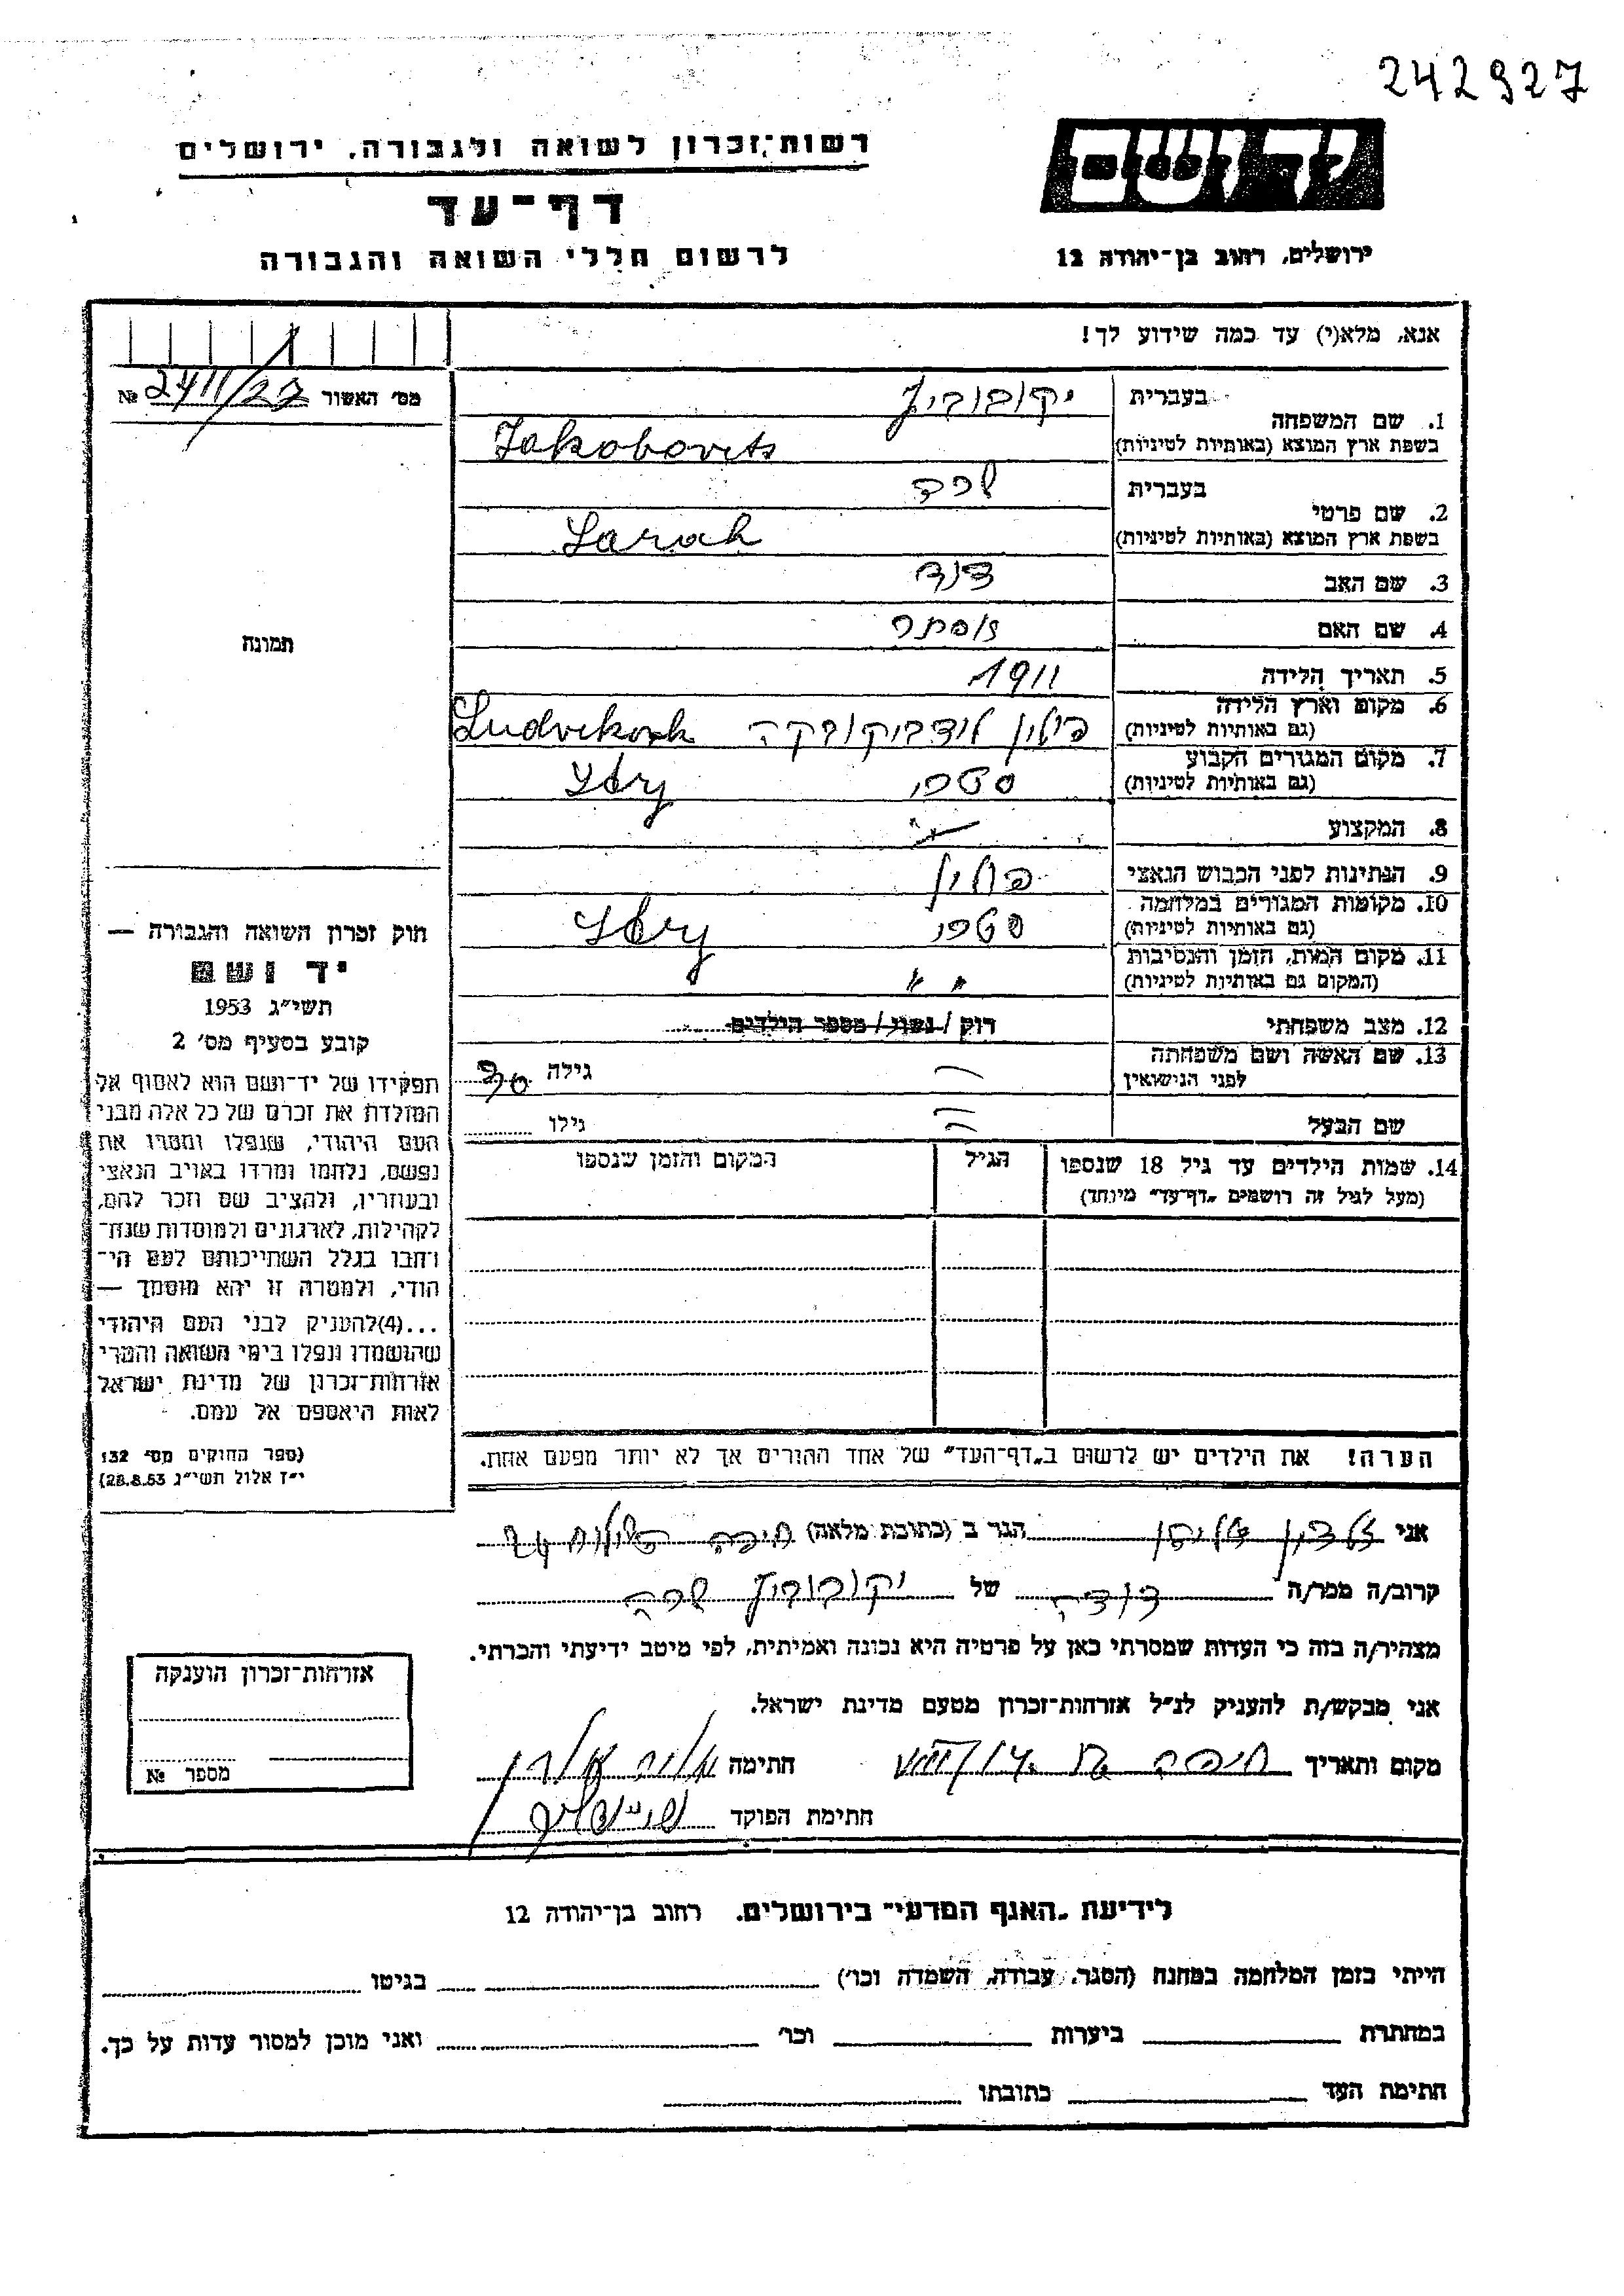 242927
יד ושם
רשות־זכרון לשואה ולגבורה, ירושלים
דף־עד
לרשום חללי השואה והגבורה
ירושלים, רחוב בן־יהודה 12
אנא, מלא(י) עד כמה שידוע לך!
מס׳ האשור № 2411/27
1. שם המשפחה בעברית יקובוביץ
בשפת ארץ המוצא (באותיות לטיניות) Jakobovits
2. שם פרטי בעברית שרה
בשפת ארץ המוצא (באותיות לטיניות) Sarah
3. שם האב דוד
4. שם האם אסתר
5. תאריך הלידה 1911
6. מקום וארץ הלידה (גם באותיות לטיניות) פולין לודביקובקה
7. מקום המגורים הקבוע (גם באותיות לטיניות) סטרי
8. המקצוע
9. הנתינות לפני הכבוש הנאצי פולין
10. מקומות המגורים במלחמה (גם באותיות לטיניות) סטרי
11. מקום המות, הזמן והנסיבות (המקום גם באותיות לטיניות)
12. מצב משפחתי רוק / נשוי / מספר הילדים
13. שם האשה ושם משפחתה לפני הנישואין גילה
שם הבעל גילו
14. שמות הילדים עד גיל 18 שנספו הגיל המקום והזמן שנספו
(מעל לגיל זה רושמים „דף־עד״ מיוחד)
הערה! את הילדים יש לרשום ב„דף־העד״ של אחד ההורים אך לא יותר מפעם אחת.
תמונה
חוק זכרון השואה והגבורה —
יד ושם
תשי״ג 1953
קובע בסעיף מס׳ 2
תפקידו של יד־ושם הוא לאסוף אל
המולדת את זכרם של כל אלה מבני
העם היהודי, שנפלו ומסרו את
נפשם, נלחמו ומרדו באויב הנאצי
ובעוזריו, ולהציב שם וזכר להם,
לקהילות, לארגונים ולמוסדות שנח־
רבו בגלל השתייכותם לעם הי־
הודי, ולמטרה זו יהא מוסמך —
...(4)להעניק לבני העם היהודי
שהושמדו ונפלו בימי השואה והמרי
אזרחות־זכרון של מדינת ישראל
לאות היאספם אל עמם.
(ספר החוקים מס׳ 132
י״ז אלול תשי״ג 28.8.53)
אני הגר ב (כתובת מלאה) חיפה
קרוב/ה מכר/ה דודה של יקובוביץ שרה
מצהיר/ה בזה כי העדות שמסרתי כאן על פרטיה היא נכונה ואמיתית, לפי מיטב ידיעתי והכרתי.
אני מבקש/ת להעניק לנ״ל אזרחות־זכרון מטעם מדינת ישראל.
מקום ותאריך חיפה חתימה
חתימת הפוקד
אזרחות־זכרון הוענקה
מספר №
לידיעת „האגף המדעי״ בירושלים. רחוב בן־יהודה 12
הייתי בזמן המלחמה במחנה (הסגר, עבודה, השמדה וכו׳) בגיטו
במחתרת ביערות וכו׳ ואני מוכן למסור עדות על כך.
חתימת העד כתובתו